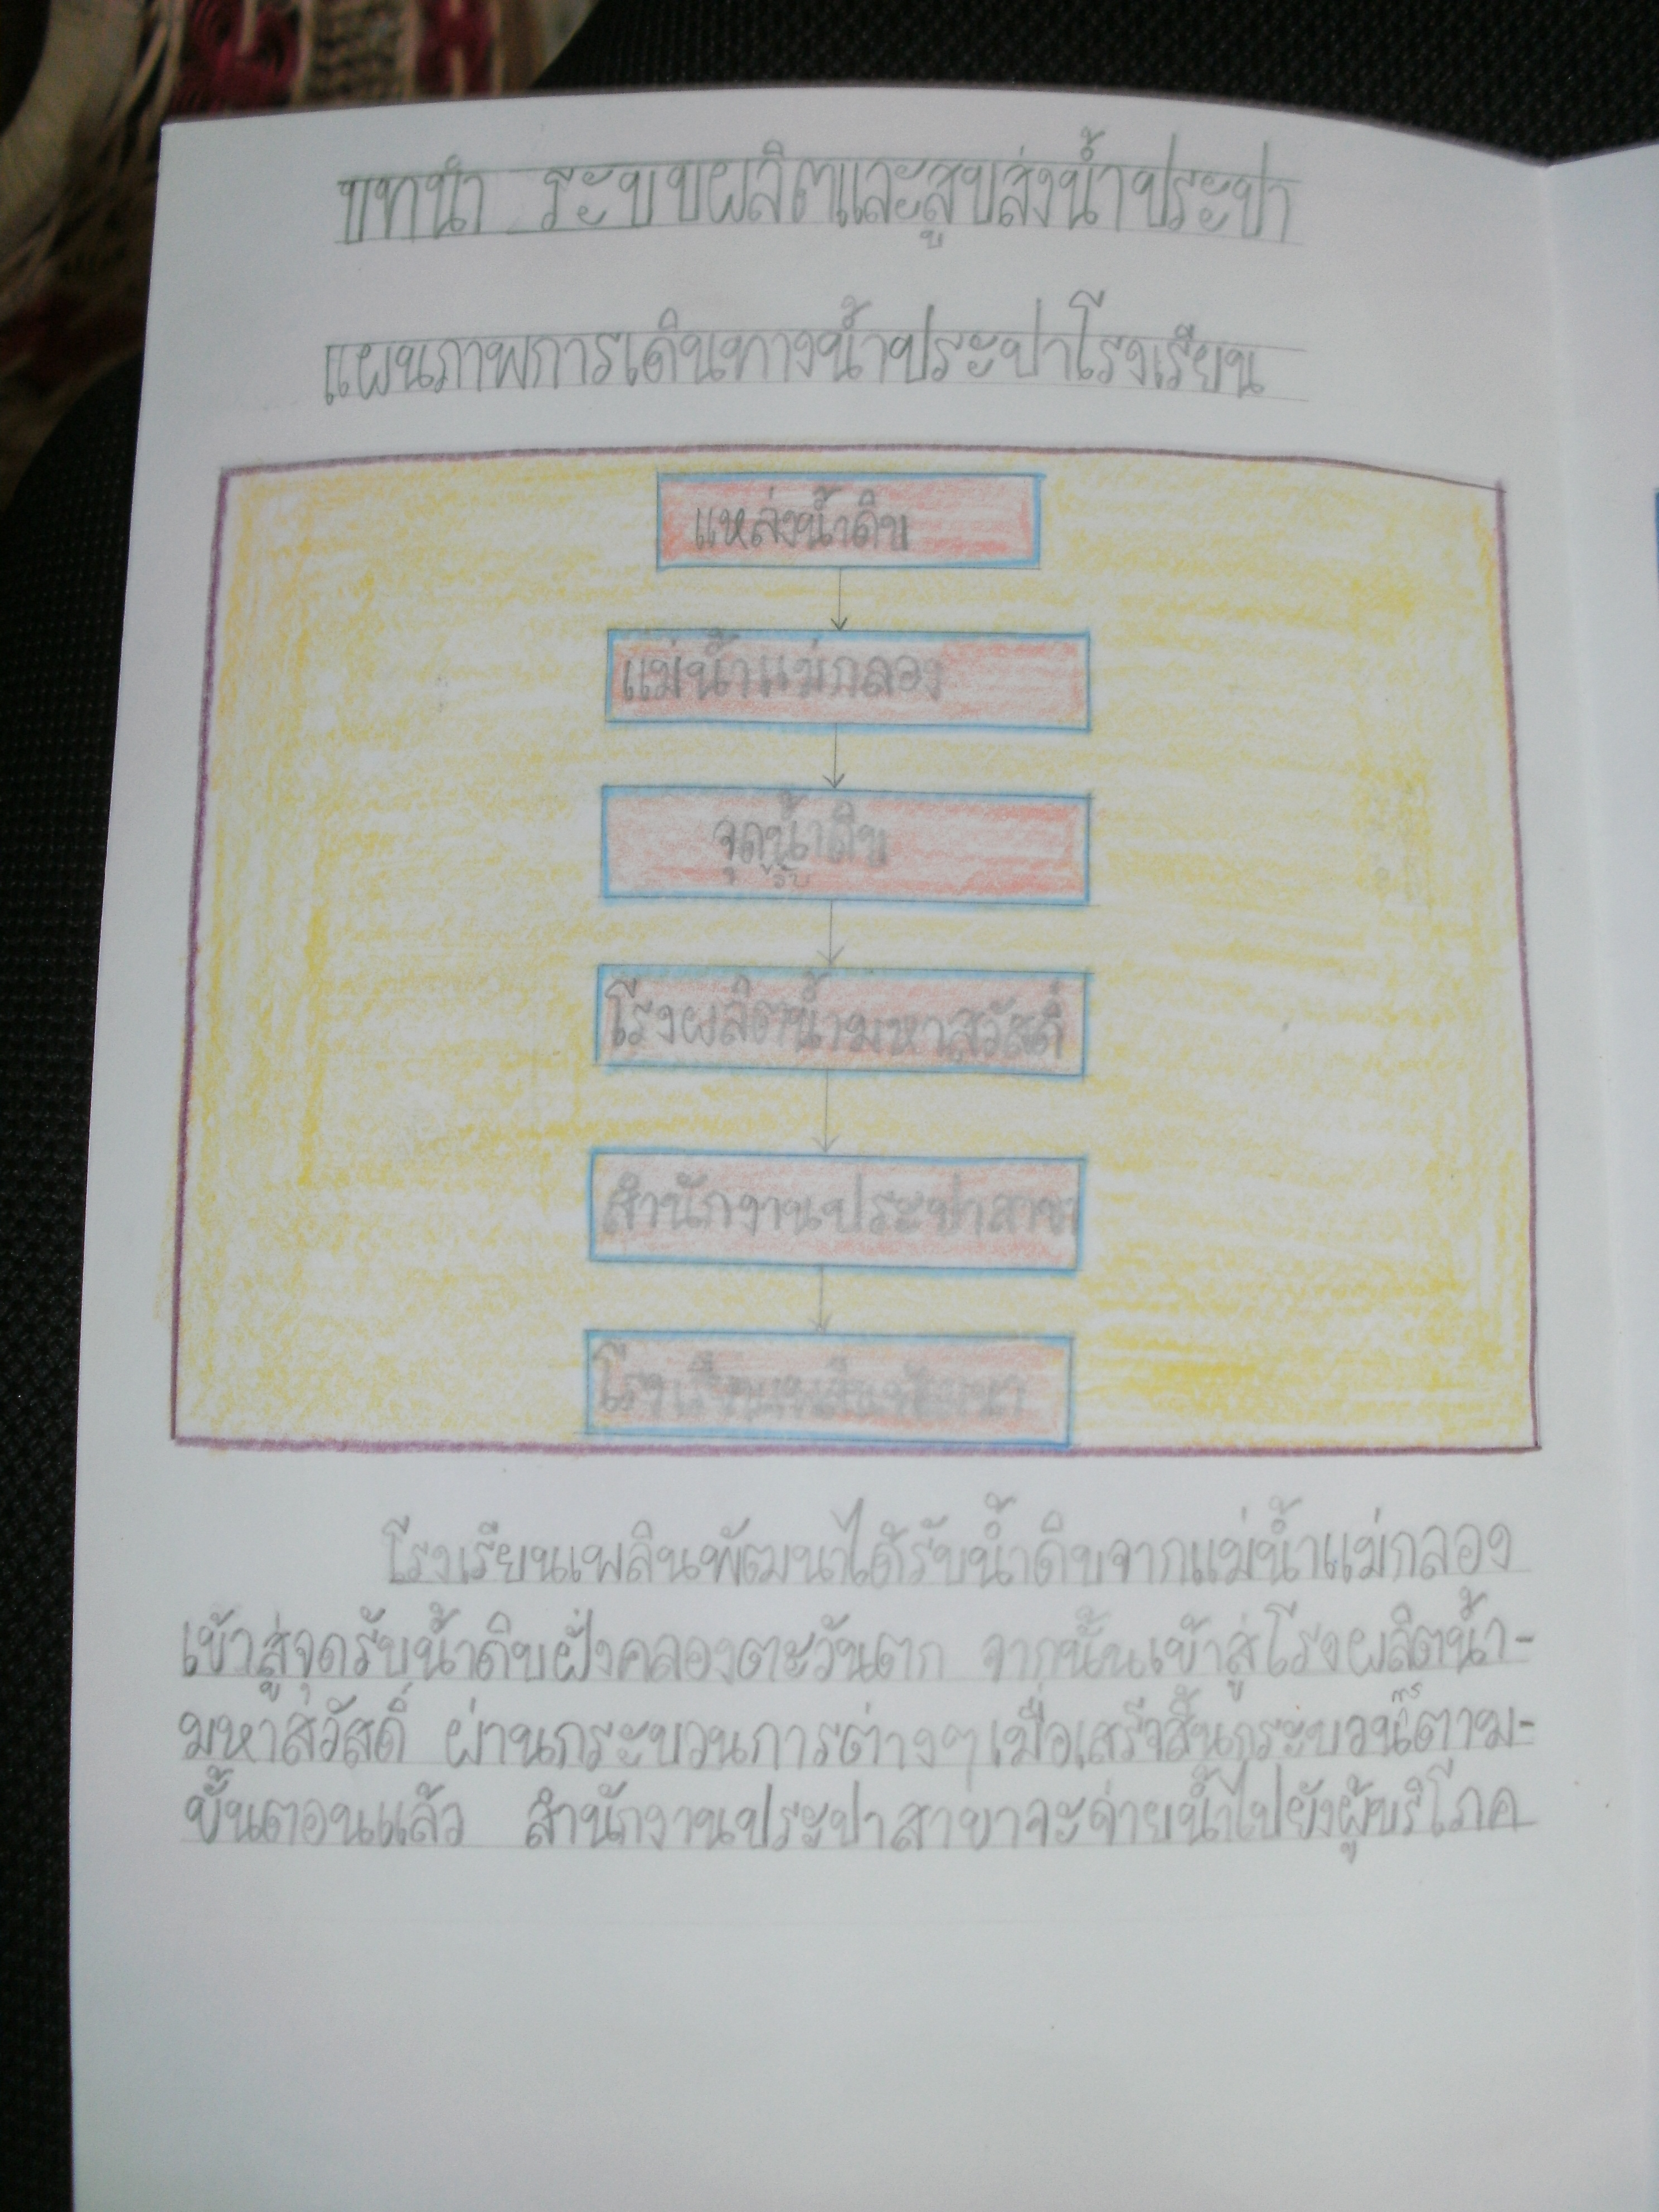 บทนำ ระบบผลิตและสูบส่งน้ำประปา
แผนภาพการเดินทางน้ำประปาโรงเรียน
แหล่งน้ำดิบ
แม่น้ำแม่กลอง
จุดรับน้ำดิบ
โรงผลิตน้ำมหาสวัสดิ์
สำนักงานประปาสาขา
โรงเรียนเพลินพัฒนา
โรงเรียนเพลินพัฒนาได้รับน้ำดิบจากแม่น้ำแม่กลอง
เข้าสู่จุดรับน้ำดิบฝั่งคลองตะวันตก จากนั้นเข้าสู่โรงผลิตน้ำ-
มหาสวัสดิ์ ผ่านกระบวนการต่างๆเมื่อเสร็จสิ้นกระบวนการตาม-
ขั้นตอนแล้ว สำนักงานประปาสาขาจะจ่ายน้ำไปยังผู้บริโภค